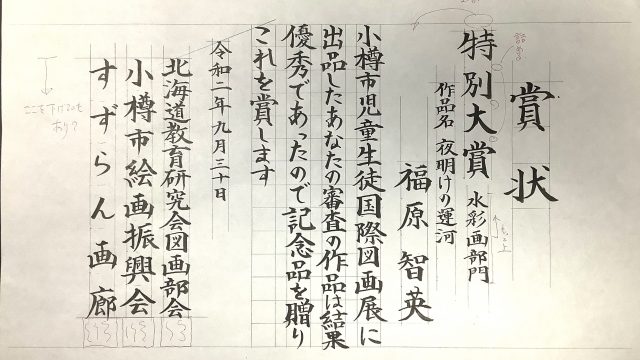 賞状
特別大賞 水彩画部門
作品名 夜明けの運河
福原智英
小樽市児童生徒国際図画展に
出品したあなたの審査の作品は結果
優秀であったので記念品を贈り
これを賞します
令和二年九月三十日
北海道教育研究会図画部会
小樽市絵画振興会
すずらん画廊